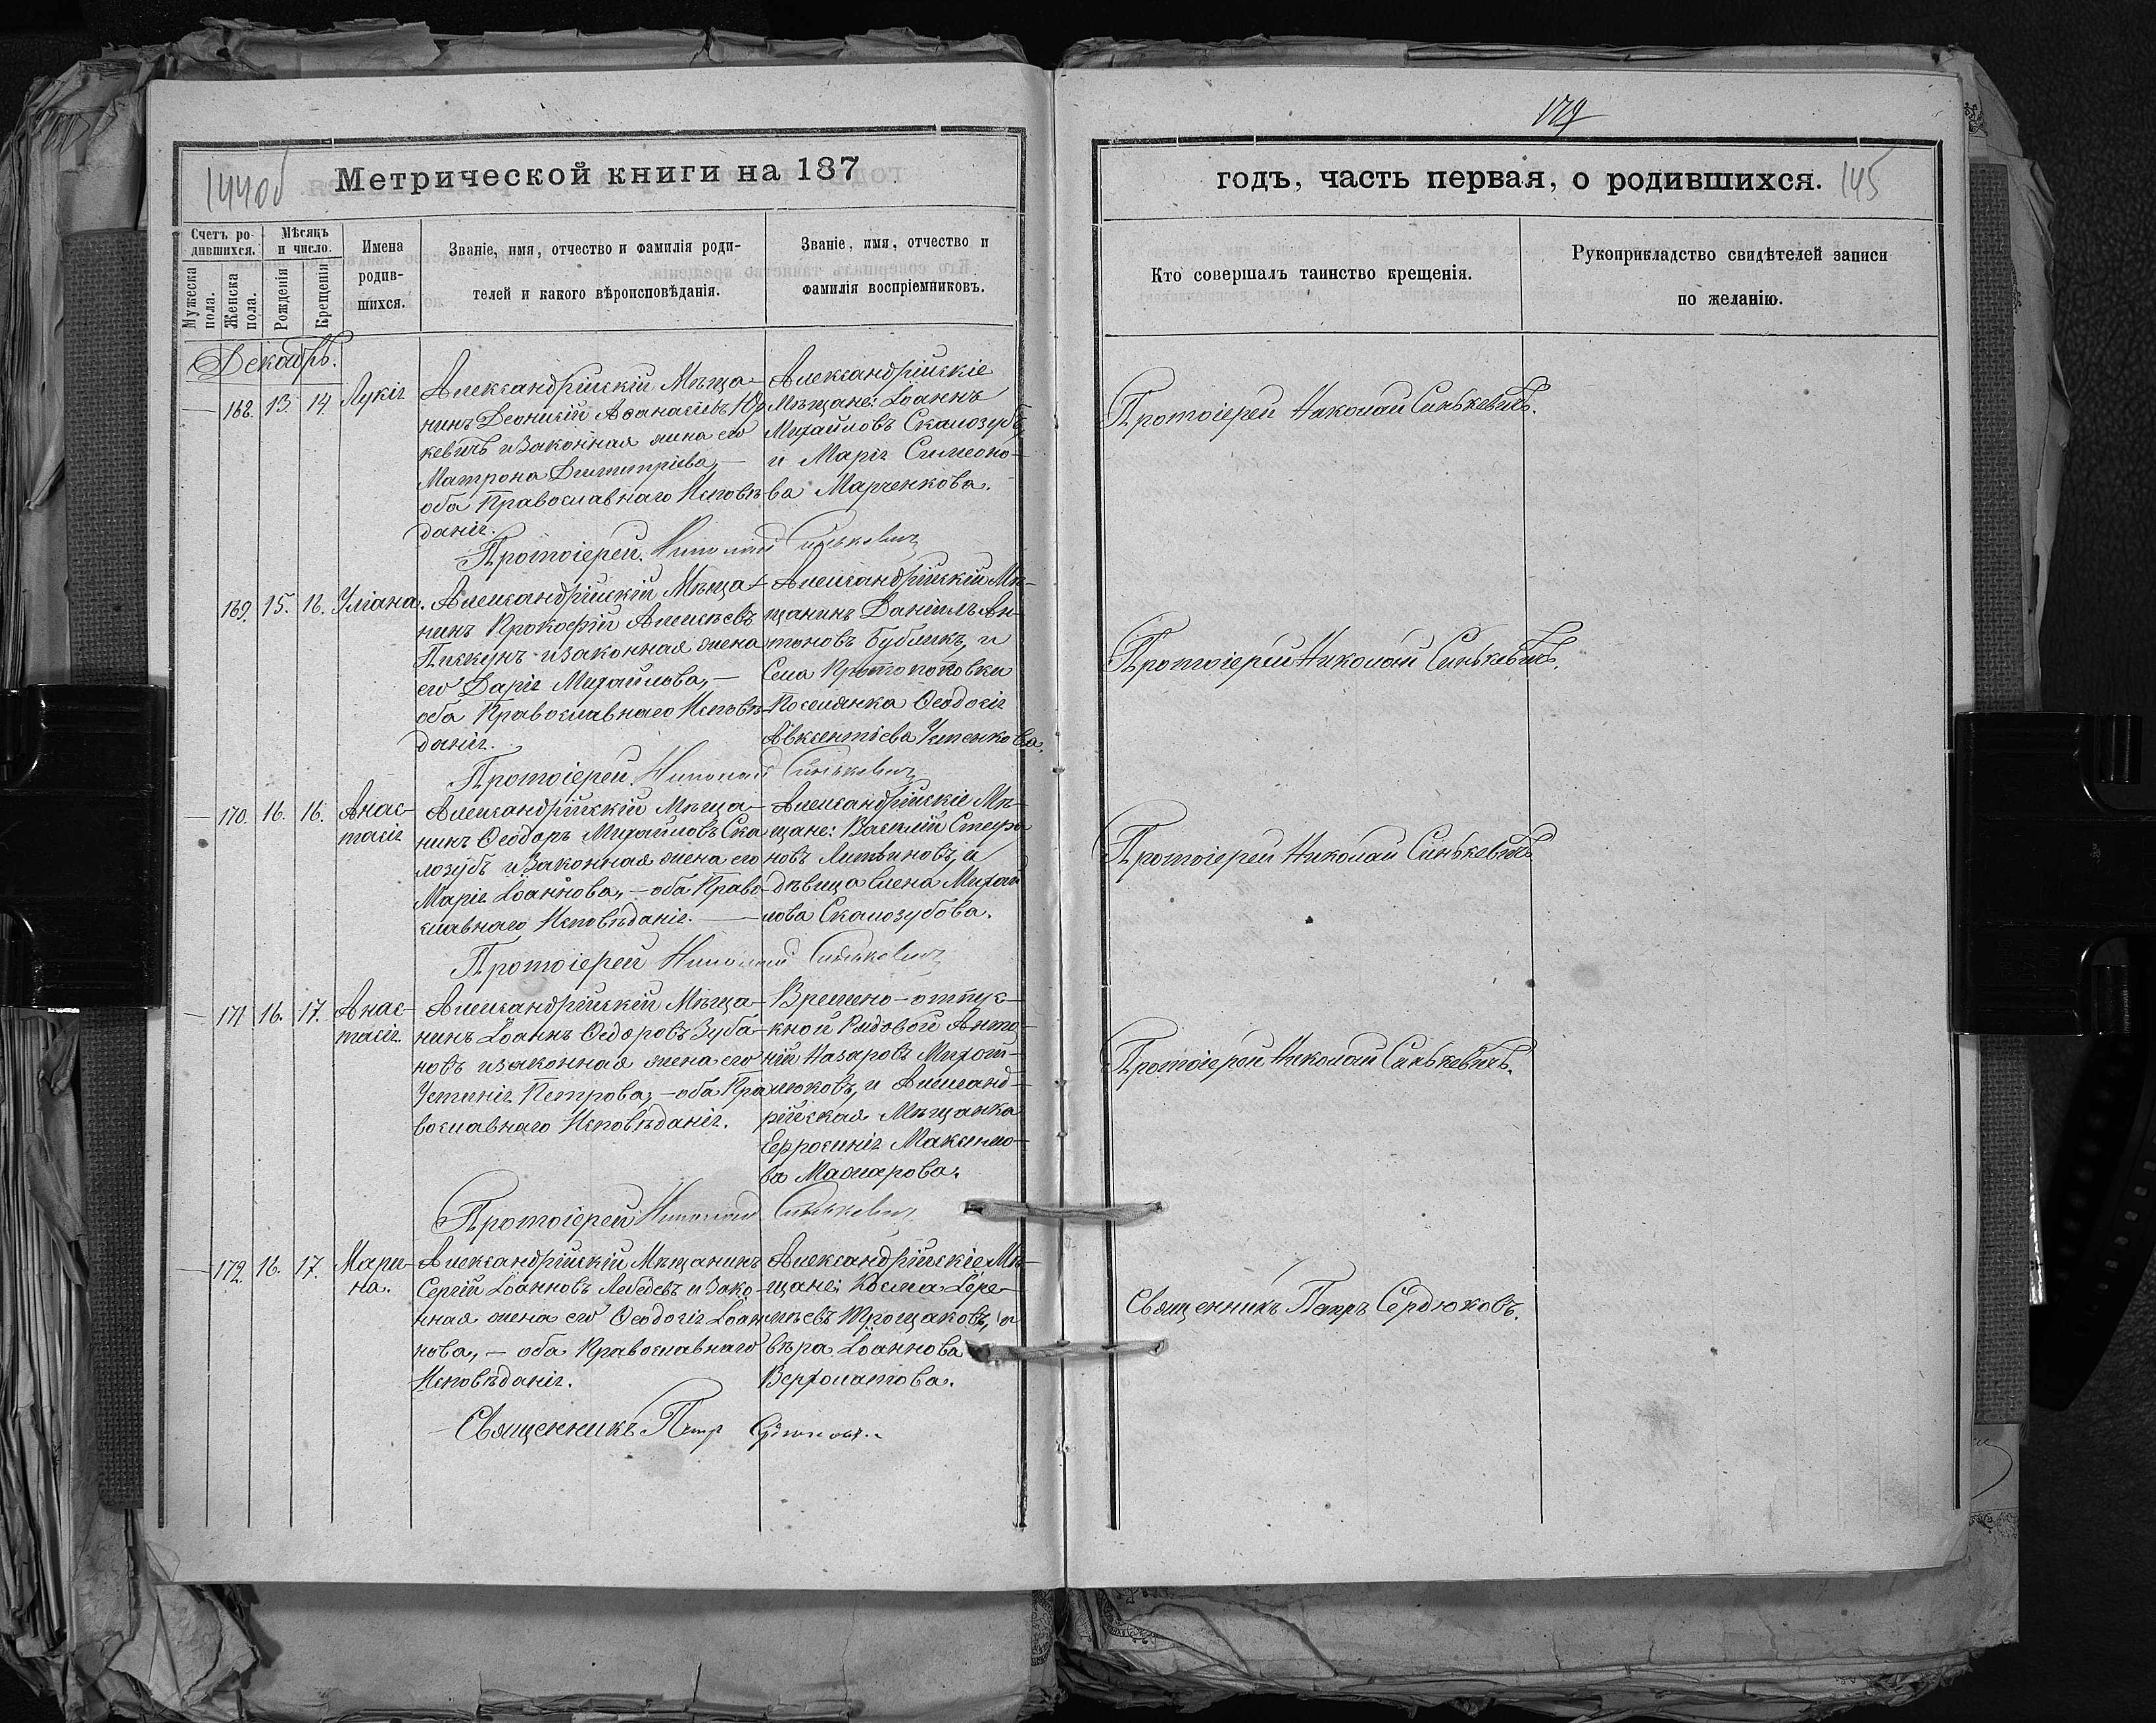 144об
Метрической книги на 187
Счетъ ро-
дившихся.
Мужеска
пола.
Женска
пола.
Мѣсяцъ
и число.
Рожденія
Крещенія
Имена
родив-
шихся.
Званіе, имя, отчество и фамилія роди-
телей и какого вѣроисповѣданія.
Званіе, имя, отчество и
фамилія воспріемниковъ.
Декабрь.
168. 13. 14. Лукія
Александрійскій Мѣща-
нинъ Леонтій Аѳанасіевъ Юр
кевичъ и законная жена его
Матрона Димитріева, —
оба Православнаго Исповѣ-
данія.
Александрійскіе
Мѣщане: Іоаннъ
Михайловъ Скалозубъ,
и Марія Симеоно-
ва Марченкова.
Протоіерей Николай Синькевичъ
169. 15. 16. Уліана.
Александрійскій Мѣща-
нинъ Прокофій Алексѣевъ
Пискунъ и законная жена
его Дарія Михайлова, —
оба Православнаго Исповѣ-
данія.
Александрійскій Мѣ-
щанинъ Даніилъ Ан-
тоновъ Бубликъ, и
Села Протопоповки
Поселянка Ѳеодосія
Авксентіева Усенкова.
Протоіерей Николай Синькевичъ
170. 16. 16. Анас-
тасія
Александрійскій Мѣща-
нинъ Ѳеодоръ Михайловъ Ска
лозубъ и законная жена его
Марія Іоаннова, — оба Право-
славнаго Исповѣданія. —
Александрійскіе Мѣ-
щане: Василій Стефа
новъ Литвиновъ, и
дѣвица Елена Михай
лова Скалозубова.
Протоіерей Николай Синькевичъ
171 16. 17. Анас-
тасія.
Александрійскій Мѣща-
нинъ Іоаннъ Ѳедоровъ Зуба-
новъ и законная жена его
Устинія Петрова, — оба Пра
вославнаго Исповѣданія.
Времено-отпус-
кной Рядовой Анто-
ній Назаровъ Михай-
люковъ, и Александ-
рійская Мѣщанка
Ефросинія Максимо-
ва
Протоіерей Николай Синькевичъ
172. 16. 17. Мари-
на.
Александрійскій Мѣщанинъ
Сергій Іоанновъ Лебедевъ и зако-
нная жена его Ѳеодосія Іоан
нова, — оба Православнаго
Исповѣданія.
Александрійскіе Мѣ-
щане: Косма Іере-
міевъ и
Вѣра Іоаннова
Верхолатова.
Священникъ Петр Сердюковъ
179
годъ, часть первая, о родившихся. 145
Кто совершалъ таинство крещенія.
Рукоприкладство свидѣтелей записи
по желанію.
Протоіерей Николай Синькевичъ.
Протоіерей Николай Синькевичъ.
Протоіерей Николай Синькевичъ
Протоіерей Николай Синькевичъ.
Священникъ Петръ Сердюковъ.